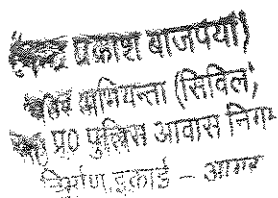 प्रकाश बाजपेयी)
अभियन्ता (सिविल)
प्र० पुलिस आवास निगम
निर्माण इकाई – आगरा